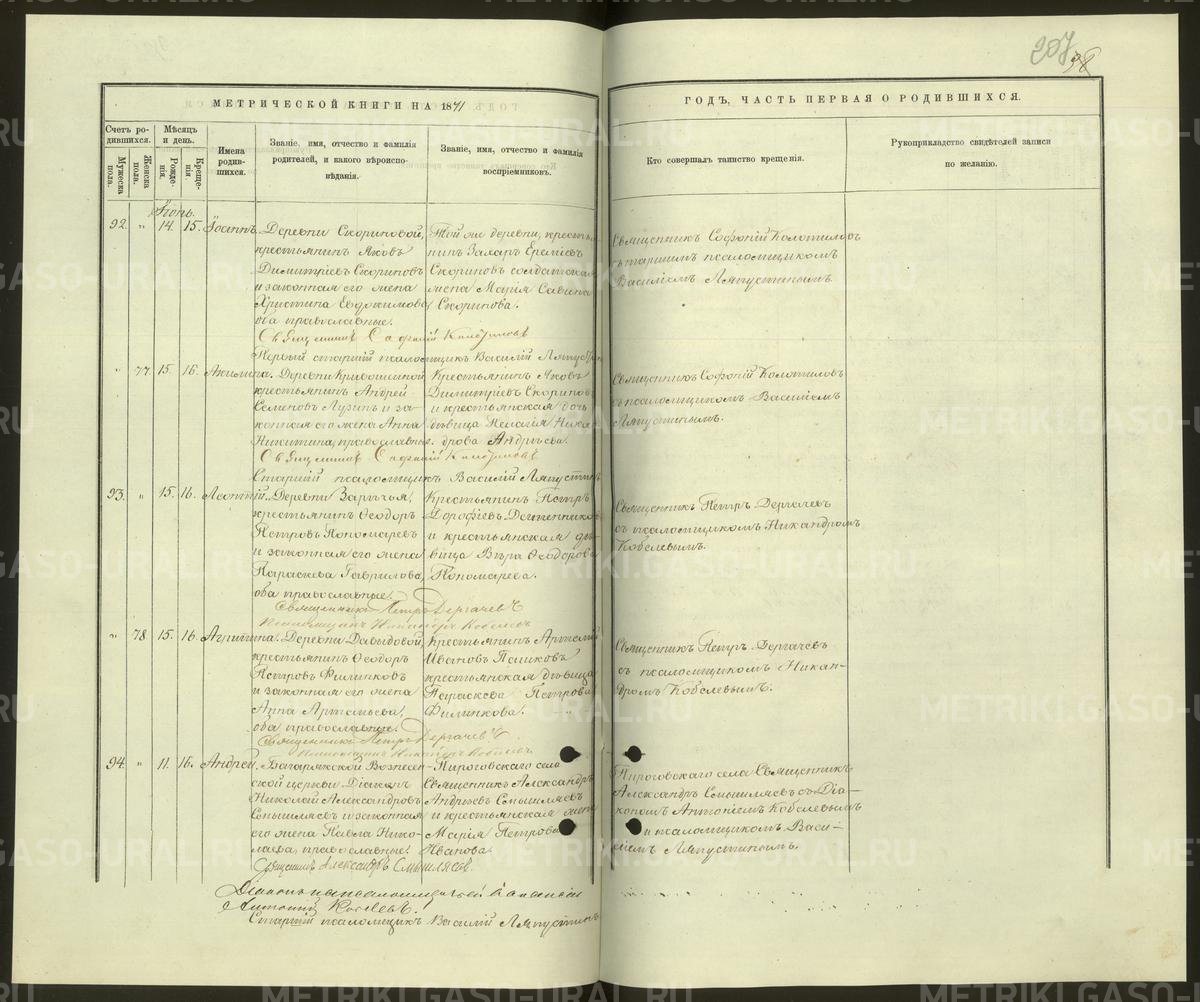 207
38
МЕТРИЧЕСКОЙ КНИГИ НА 1871
ГОДЪ, ЧАСТЬ ПЕРВАЯ О РОДИВШИХСЯ.
Счетъ родившихся.
Мужеска пола.
Женска пола.
Мѣсяцъ и день.
Рожденія.
Крещенія.
Имена родившихся.
Званіе, имя, отчество и фамилія
родителей, и какого вѣроиспо-
вѣданія.
Званіе, имя, отчество и фамилія
воспріемниковъ.
Кто совершалъ таинство крещенія.
Рукоприкладство свидѣтелей записи
по желанію.
Іюнь.
92. " 14. 15. Іоаннъ.
Деревни Скориновой,
крестьянинъ Яковъ
Димитріевъ Скориновъ
и законная его жена
Христина Евдокимова,
оба православные.
Той же деревни, крестья-
нинъ Захаръ Ереміевъ
Скориновъ солдатская
жена Марія Савина
Скоринова.
Священникъ Софоній Колотиловъ
съ старшимъ псаломщикомъ
Василіемъ Ляпустинымъ.
Священникъ Софоній Колотиловъ
Первый старшій псаломщикъ Василій Ляпустинъ
" 77. 15. 16. Акилина.
Деревни Кривошеиной
крестьянинъ Андрей
и за-
конная его жена Анна
Никитина, православные.
Крестьянинъ Яковъ
Димитріевъ Скориновъ
и крестьянская дочь
дѣвица Пелагія Никан-
дрова Андрѣева.
Священникъ Софоній Колотиловъ
съ псаломщикомъ Василіемъ
Ляпустинымъ.
Священникъ Софоній Колотиловъ
Старшій псаломщикъ Василій Ляпустинъ
93. " 15. 16. Леонтій.
Деревни Зарѣчья,
крестьянинъ Ѳеодоръ
Петровъ Пономаревъ
и законная его жена
Параскева Гаврилова,
оба православные.
Крестьянинъ Петръ
Дорофѣевъ
и крестьянская дѣ-
вица Вѣра Ѳеодорова
Пономарева.
Священникъ Петръ Дергачевъ
съ псаломщикомъ Никандромъ
Кобелевымъ.
Священникъ Петръ Дергачевъ
Псаломщикъ Никандръ Кобелевъ
" 78. 15. 16. Агрипина.
Деревни Давыдовой,
крестьянинъ Ѳеодоръ
Петровъ Филинковъ
и законная его жена
Анна Артемьева,
оба православные.
крестьянинъ Артемій
Ивановъ
крестьянская дѣвица
Параскева Петрова
Филинкова.
Священникъ Петръ Дергачевъ
съ псаломщикомъ Никан-
дромъ Кобелевымъ.
Священникъ Петръ Дергачевъ
Псаломщикъ Никандръ Кобелевъ
94. " 11. 16. Андрей.
Багарякской Вознесен-
ской церкви Діаконъ
Николай Александровъ
Смышляевъ и законная
его жена Павла Нико-
лаева, православные.
Пироговскаго села
Священникъ Александръ
Андрѣевъ Смышляевъ
и крестьянская жена
Марія Петрова
Иванова.
Пироговскаго села Священникъ
Александръ Смышляевъ съ Діа-
кономъ Антоніемъ Кобелевымъ
и псаломщикомъ Васи-
ліемъ Ляпустинымъ.
Священникъ Александръ Смышляевъ.
Діаконъ на псаломщической вакансіи
Антоній Кобелевъ.
Старшій псаломщикъ Василій Ляпустинъ
METRIKI.GASO-URAL.RU